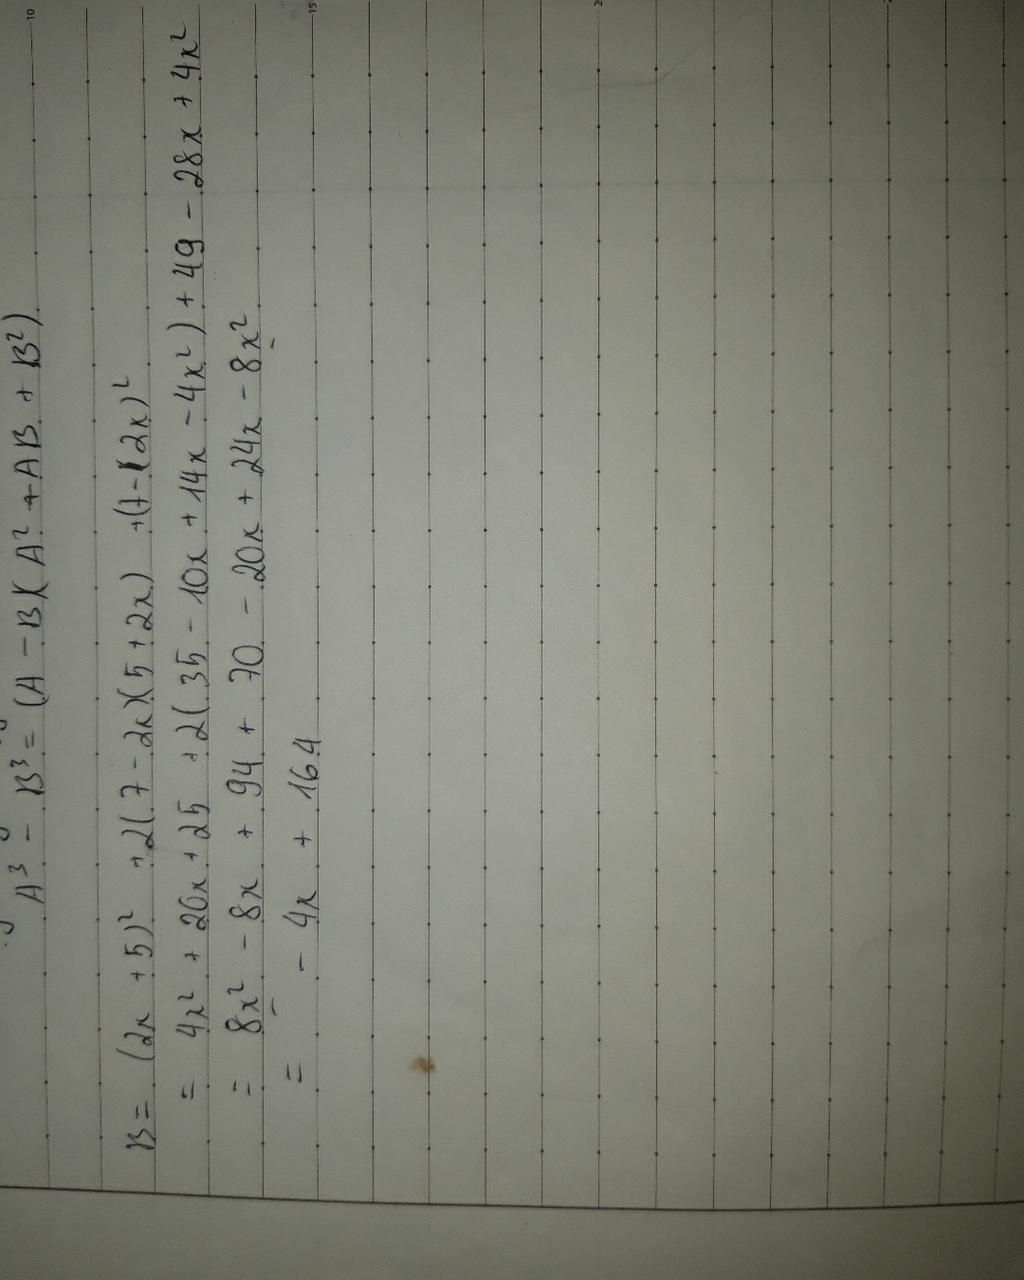 A³ - B³ = (A - B)(A² + AB + B²)
B = (2x + 5)² + 2(7 - 2x)(5 + 2x) + (7 - (2x)²
= 4x² + 20x + 25 + 2(35 - 10x + 14x - 4x²) + 49 - 28x + 4x²
= 8x² - 8x + 94 + 70 - 20x + 24x - 8x²
= - 4x + 164
10
15
2